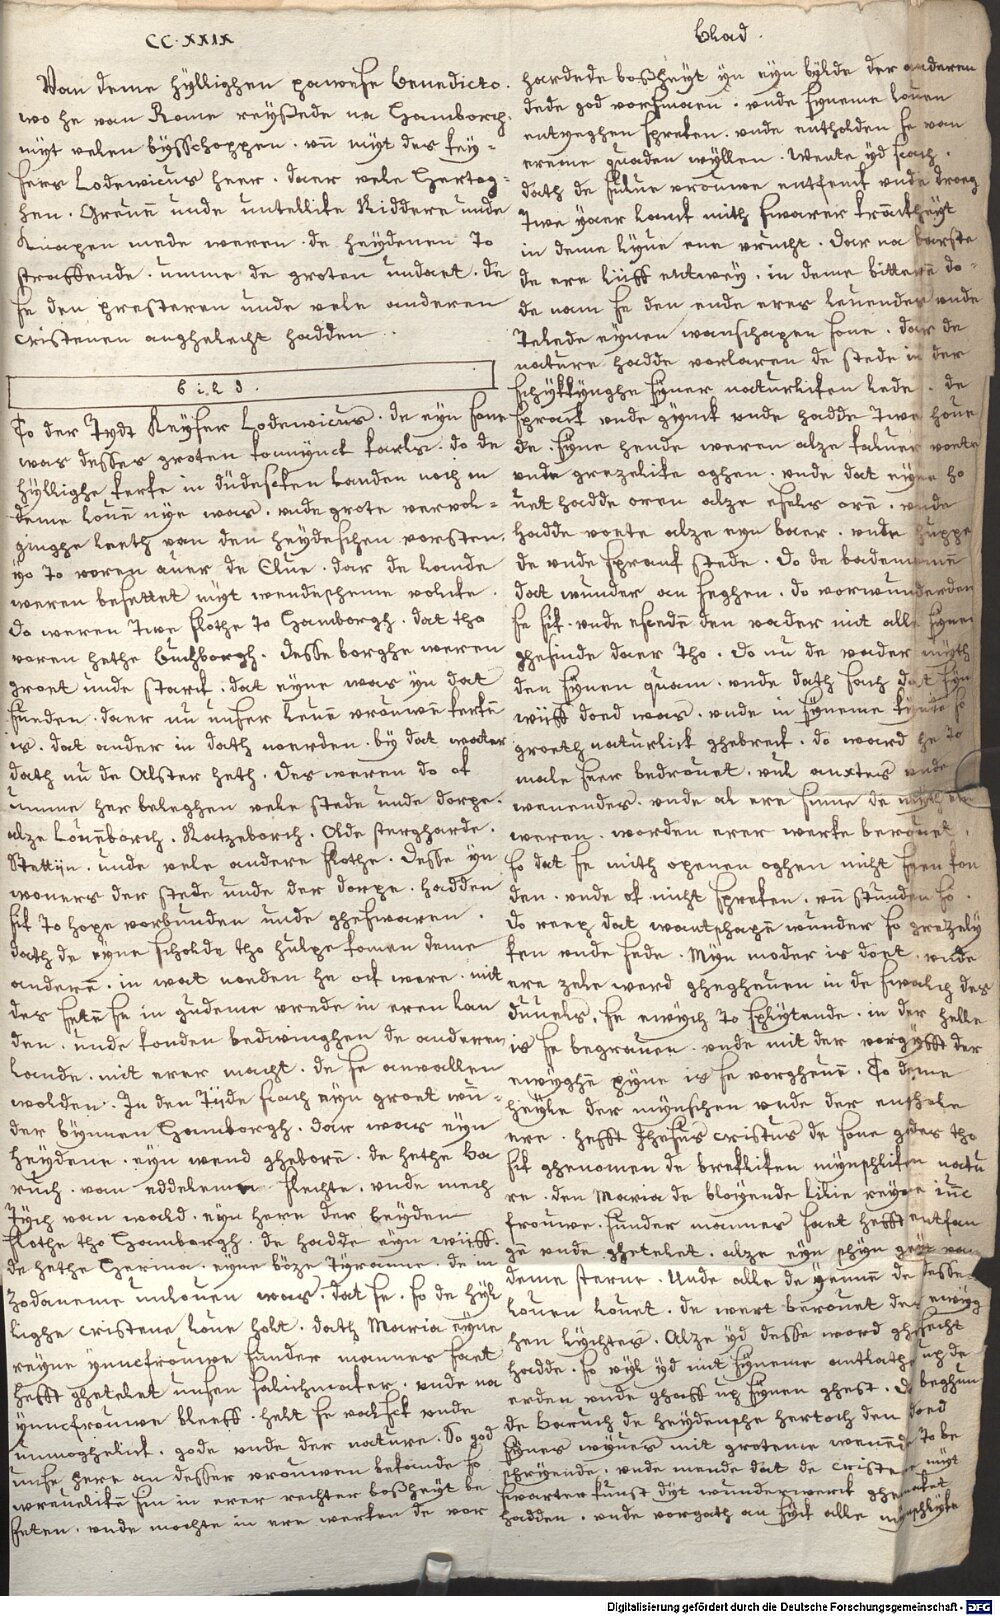 CC·XXIX
blad.
Van deme hyllighen pawese benedicto.
wo he van Rome reyßede na Hamborch.
myt velen bysschoppen. vnd myt des key-
sers Lodewicus heer. daer vele Hertog-
hen. Greuen unde untellike Riddere unde
Knapen mede weren. de heydenen to
straffende. umme de groten undaet. de
se den presteren unde vele anderen
cristenen anghelecht hadden.
bild.
To der Tydt Keyser Lodewicus. de eyn sone
was desses groten konnynck karls. do de
hyllighe kerke in düdescken landen noch in
deme louen nye was. unde grote vervol-
ginghe leeth van den heydeschen vorsten.
yo to voren auer de Elue. dar de lande
weren besettet myt wendescheme volcke.
Do weren twe slothe to Hamborgh. dat tho
voren hethe buchborgh. desse borghe weren
groet unde starck. dat eyne was yn dat
sueden. daer nu unser leuen vrouwen kerke
is. dat ander in dath noerden. by dat water
dath nu de Alster heth. des weren do ok
umme her beleghen vele stede unde dorpe.
alze Louenborch. Ratzeborch. Olde stergharde.
Stettyn. unde vele andere slothe. Desse yn
woners der stede unde der dorpe. hadden
sik to hope vorbunden unde gheswaren.
dath de eyne scholde tho hulpe komen deme
anderen. in wat noeden he ock were. mit
des seten se in gudeme vrede in eren lan
den. unde konden bedwinghen de anderen
lande. mit erer macht. de se anvallen
wolden. In den Tyde schach eyn groet wun-
der bynnen Hamborgh. dar was eyn
heydene. eyn wend gheboren. de hethe Ba
ruch. van eddelem slechte. unde mech
tych van wald. eyn here der beyden
slothe tho Hamborgh. de hadde eyn wiiff.
de hethe Herma. eyne böze Tyranne. de in
zodaneme unlouen was. dat se. so de hyl
lighe cristene loue holt. dath Maria eyne
reyne yuncfrouwe sunder mannes saet
hefft ghetelet unsen salichmaker. unde na
yuncfrouwe bleeff. helt se valsck unde
unmoghelick. gode unde der nature. So god
unse here an desser vrouwen bekande so
wreueliken sin in erer rechter boßheyt be
seten. unde mochte in ere werken de vor
hardede boßheyt yn eyn bylde der anderen
dede god vorsmaen. unde syneme louen
entyeghen spreken. unde entholden se van
ereme quaden wyllen. Wente yd schach.
dath de sulue vrouwe entfenck unde droeg
twe yaer lanck mith swarer kranckheyt
in deme lyue ene vrucht. Dar na barste
de ere liiff entwey. in deme bitteren do-
de nam se den ende eres leuendes unde
Telede eynen wanschapen sone. dar de
nature hadde vorlaren de stede in der
schyckynghe syner naturliken lede. de
sprack unde gynck unde hadde twe houe
de. syne hende weren alze kaluer voete
unde grezelike oghen. unde dat eyne ho
uet hadde oren alze esels oren. unde
hadde voete alze eyn baer. unde huppe
de unde spranck stede. Do de bademomen
dat wunder an seghen. do vorwunderden
se sik. unde escheden den vader mit alle synen
ghesinde daer tho. Do nu de vader myth
den synen quam. unde dath sach dat syn
wiiff doed was. unde in syneme kynde so
groeth naturlick ghebreck. do ward he to
male seer bedrouet. vul anxtes unde
wenendes. unde al ere sinne de myth em
weren. worden erer werke berouet.
so dat se mith openen oghen nicht seen kon
den. unde ok nicht spreken. unn stunden so.
do reep dat wanschapen wunder so grezely
ken unde sede. Myn moder is doet. unde
ere zele werd ghegheuen in de swalch des
duuels. se ewych to splytende. in der helle
is se begrauen. unde mit der vorgyfft der
ewyghen pyne is se vorgheuen. To deme
heyle der mynschen unde der enghele
ere. hefft Jhesus cristus de sone godes tho
sik ghenomen de brekliken mynschliken natu
re. den Maria de bloyende lilie reyne iunc
frouwe. sunder mannes saet hefft entfan
gen unde ghetelet. alze eyn schyn geyt van
deme sterne. Unde alle de yenne de desse
louen louet. de wert berouet des ewyg
hen lychtes. Alze yd desse word ghesecht
hadde. so vyl yd mit syneme antlathe up de
erden unde ghaff up synen ghest. Do beghun
de Baruch de heydensche hertoch den doed
synes wyues mit groteme wenende to be
schryende. unde mende dat de cristen myt
swarter kunst dyt wunderwerck ghemaket
hadden. unde vorgath an syck alle mynschlyke
Digitalisierung gefördert durch die Deutsche Forschungsgemeinschaft - DFG